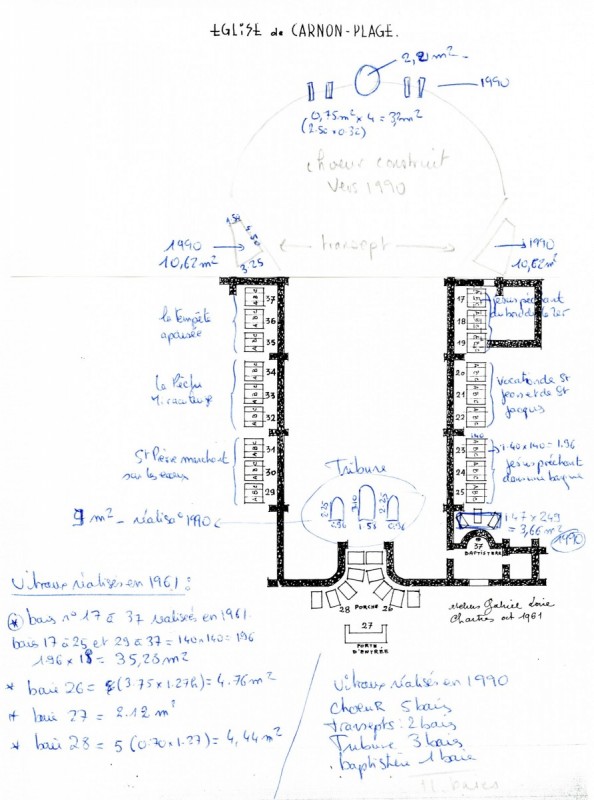 EGLISE de CARNON-PLAGE.
2,2 m²
1990
0,75m² x 4 = 3m²
(2.50 x 0.30)
choeur construit
vers 1990
1990
10,62 m²
1.50
5.50
3.25
transept
1990
10,62 m²
la tempête
apaisée
37
36
35
la Pêche
Miraculeuse
34
33
32
St Pierre marchant
sur les eaux
31
30
29
17
18
19
Jésus prêchant
au bord de le
20
21
22
Vocation de St
Jean et de St
Jacques
140
23
24
25
1.40x140 = 1.96
Jésus prêchant
dans une barque
Tribune
9 m² - réalisé 1990
1.47 x 249
= 3,66 m²
1990
37
BAPTISTERE
28
PORCHE
26
27
PORTE
D'ENTREE
Ateliers Gabriel Loire
Chartres oct 1961
Vitraux réalisés en 1961 :
* bais n° 17 à 37 réalisés en 1961.
bais 17 à 25 et 29 à 37 = 140x140 = 196
196 x 18 = 35,28 m²
* baie 26 = (3.75 x 1.27h) = 4.76 m²
* baie 27 = 2.12 m²
* baie 28 = 5 (0.70 x 1.27) = 4,44 m²
Vitraux réalisés en 1990
choeur 5 bais
transepts : 2 bais
Tribune 3 bais
baptistère 1 baie
11 baies